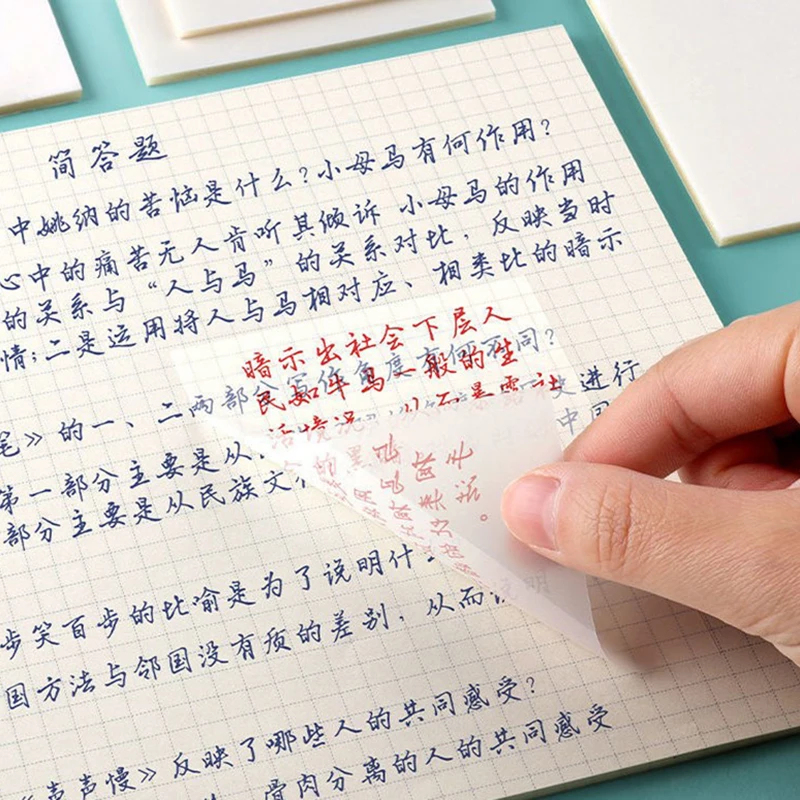 简答题
中姚纳的苦恼是什么?小母马有何作用?
心中的痛苦无人肯听其倾诉 小母马的作用
的关系与“人与马”的关系对比,反映当时
情;二是运用将人与马相对应、相类比的暗示
暗示出社会下层人
民如牛马一般的生
活情况,从而暴露社
笔》的一、二两部分写作角度有何不同?
第一部分主要是从 史进行
部分主要是从民族文 中国
步笑百步的比喻是为了说明什
国方法与邻国没有质的差别,从而说明
《声声慢》反映了哪些人的共同感受?
骨肉分离的人的共同感受